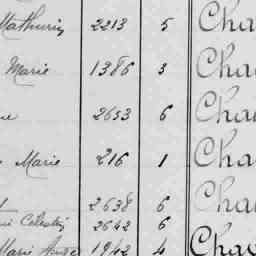 Mathurin 2213 5 Cha
Marie 1386 3 Cha
2653 6 Cha
Marie 216 1 Cha
2638 6 Cha
2642 6
Marie 1942 4 Cha